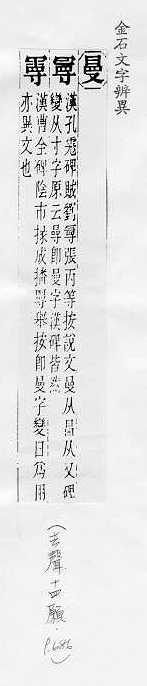 金石文字辨異
曼
漢孔宙碑賊劉㝵張丙等按說文曼从冃从又碑
變从寸字原云㝵即曼字漢碑皆然
漢曹全碑陰市掾成播曼舉按即曼字變冃爲用
亦異文也
(去聲十四願.
P.686)